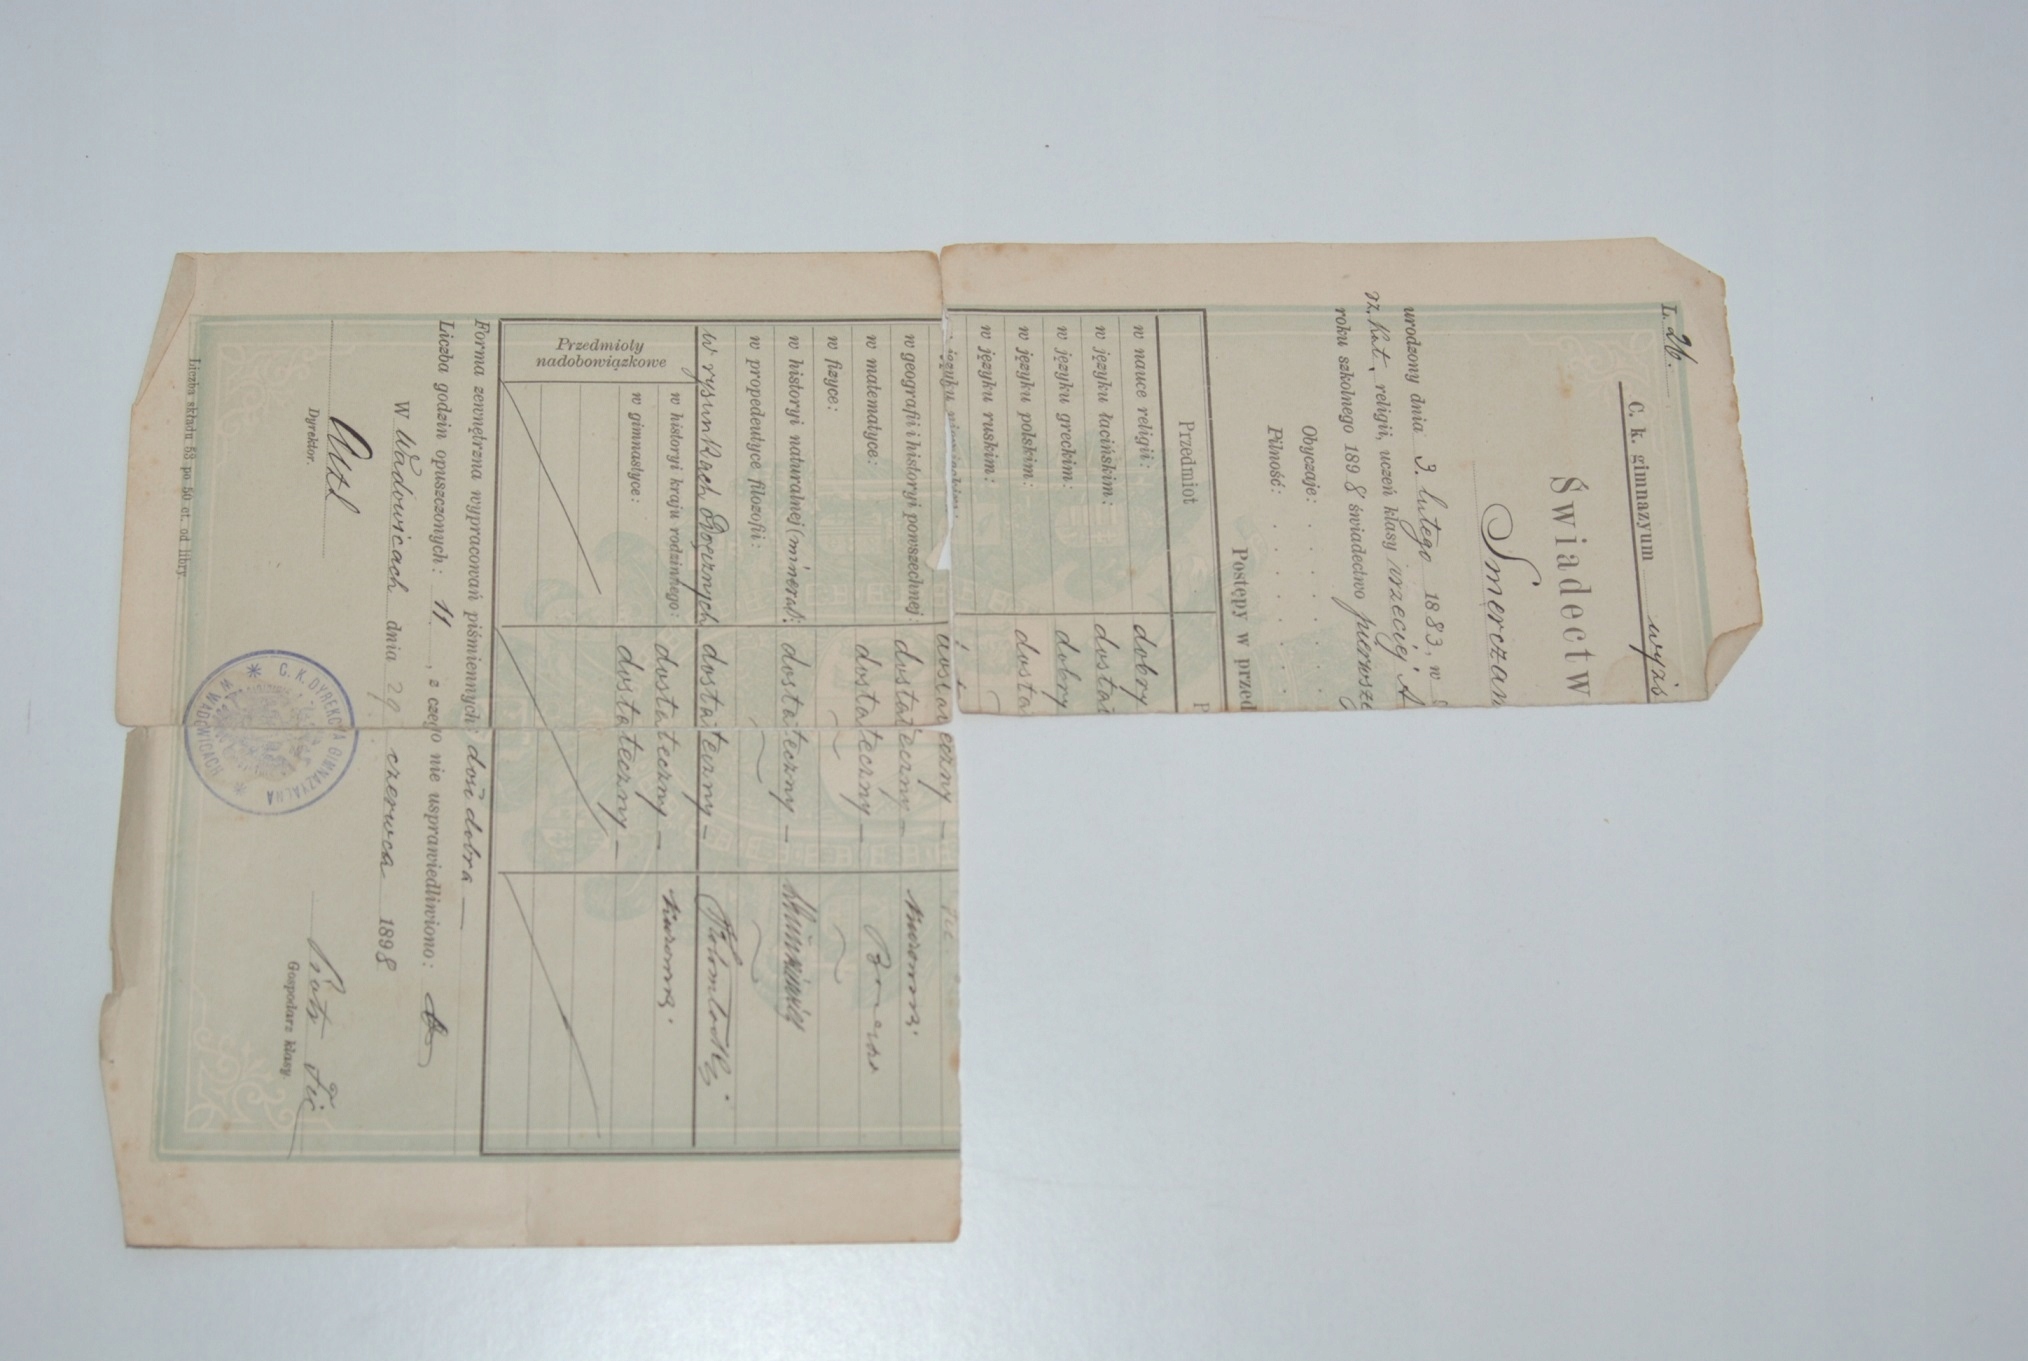 L. 26.
C. k. gimnazyum wyżs
Świadectw
Smerczan
urodzony dnia 3. lutego 1883, w
rz. kat. religii, uczeń klasy trzeciej A
roku szkolnego 1898 świadectwo pierwsze
Obyczaje:
Pilność:
Postępy w przed
Przedmiot P
w nauce religii: dobry
w języku łacińskim: dostat
w języku greckim: dobry
w języku polskim: dosta
w języku ruskim:
w języku niemieckim: dostateczny —
w geografii i historyi powszechnej: dostateczny —
w matematyce: dostateczny —
w fizyce:
w historyi naturalnej (mineral): dostateczny —
w propedeutyce filozofii:
w rysunkach odręcznych dostateczny —
Przedmioty nadobowiązkowe
w historyi kraju rodzinnego: dostateczny —
w gimnastyce: dostateczny —
Forma zewnętrzna wypracowań piśmiennych: dość dobra —
Liczba godzin opuszczonych: 11, z czego nie usprawiedliwiono:
W Wadowicach dnia 29 czerwca 1898
Dyrektor.
Piotr
Gospodarz klasy.
C. K. DYREKCYA GIMNAZYALNA W WADOWICACH
Liczba składu 53 po 50 ct. od libry